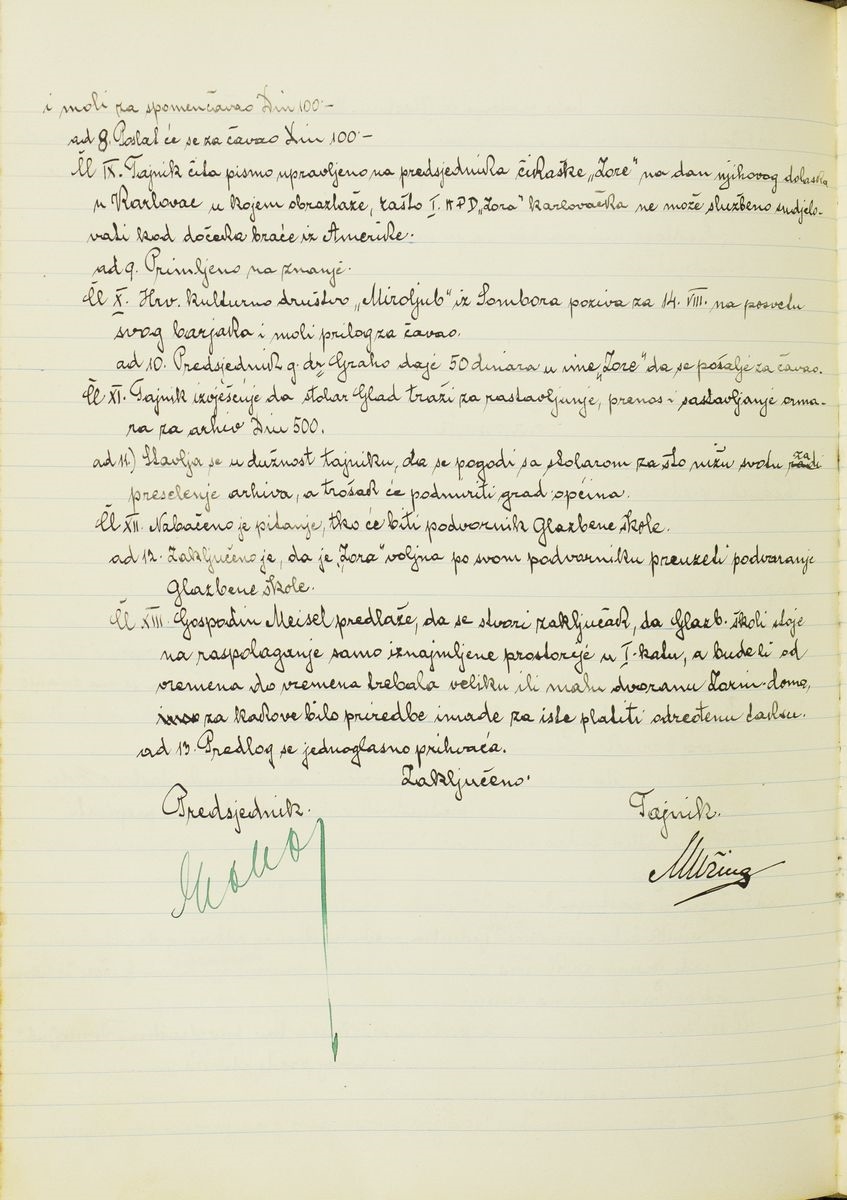 i moli za spomenčavao Din 100·–
ad 8. Poslat će se za čavao Din 100–
Čl IX. Tajnik čita pismo upravljeno na predsjednika čikaške „Zore" na dan njihovog dolaska
u Karlovac u kojem obrazlaže, zašto I. HPD „Zora" karlovačka ne može službeno sudjelo-
vati kod dočeka braće iz Amerike.
ad 9. Primljeno na znanje.
Čl X. Hrv. kulturno društvo „Miroljub" iz Sombora poziva za 14. VIII. na posvetu
svog barjaka i moli prilog za čavao.
ad 10. Predsjednik g. dr. Graho daje 50 dinara u ime „Zore" da se pošalje za čavao.
Čl XI. Tajnik izvješćuje da stolar Glad traži za rastavljanje, prenos i sastavljanje orma-
ra za arhiv Din 500.
ad 11.) Stavlja se u dužnost tajniku, da se pogodi sa stolarom za što nižu svotu za
preselenje arhiva, a trošak će podmiriti grad općina.
Čl XII. Nabačeno je pitanje, tko će biti podvornik Glazbene škole.
ad 12. Zaključeno je, da je „Zora" voljna po svom podvorniku preuzeti podvaranje
Glazbene škole.
Čl XIII. Gospodin Meisel predlaže, da se stvori zaključak, da Glazb. školi stoje
na raspolaganje samo iznajmljene prostorije u I. katu, a bude li od
vremena do vremena trebala veliku ili malu dvoranu Zorin-doma,
za kakove bilo priredbe imade za iste platiti određenu taksu.
ad 13. Predlog se jednoglasno prihvaća.
Zaključeno.
Predsjednik.
Tajnik.